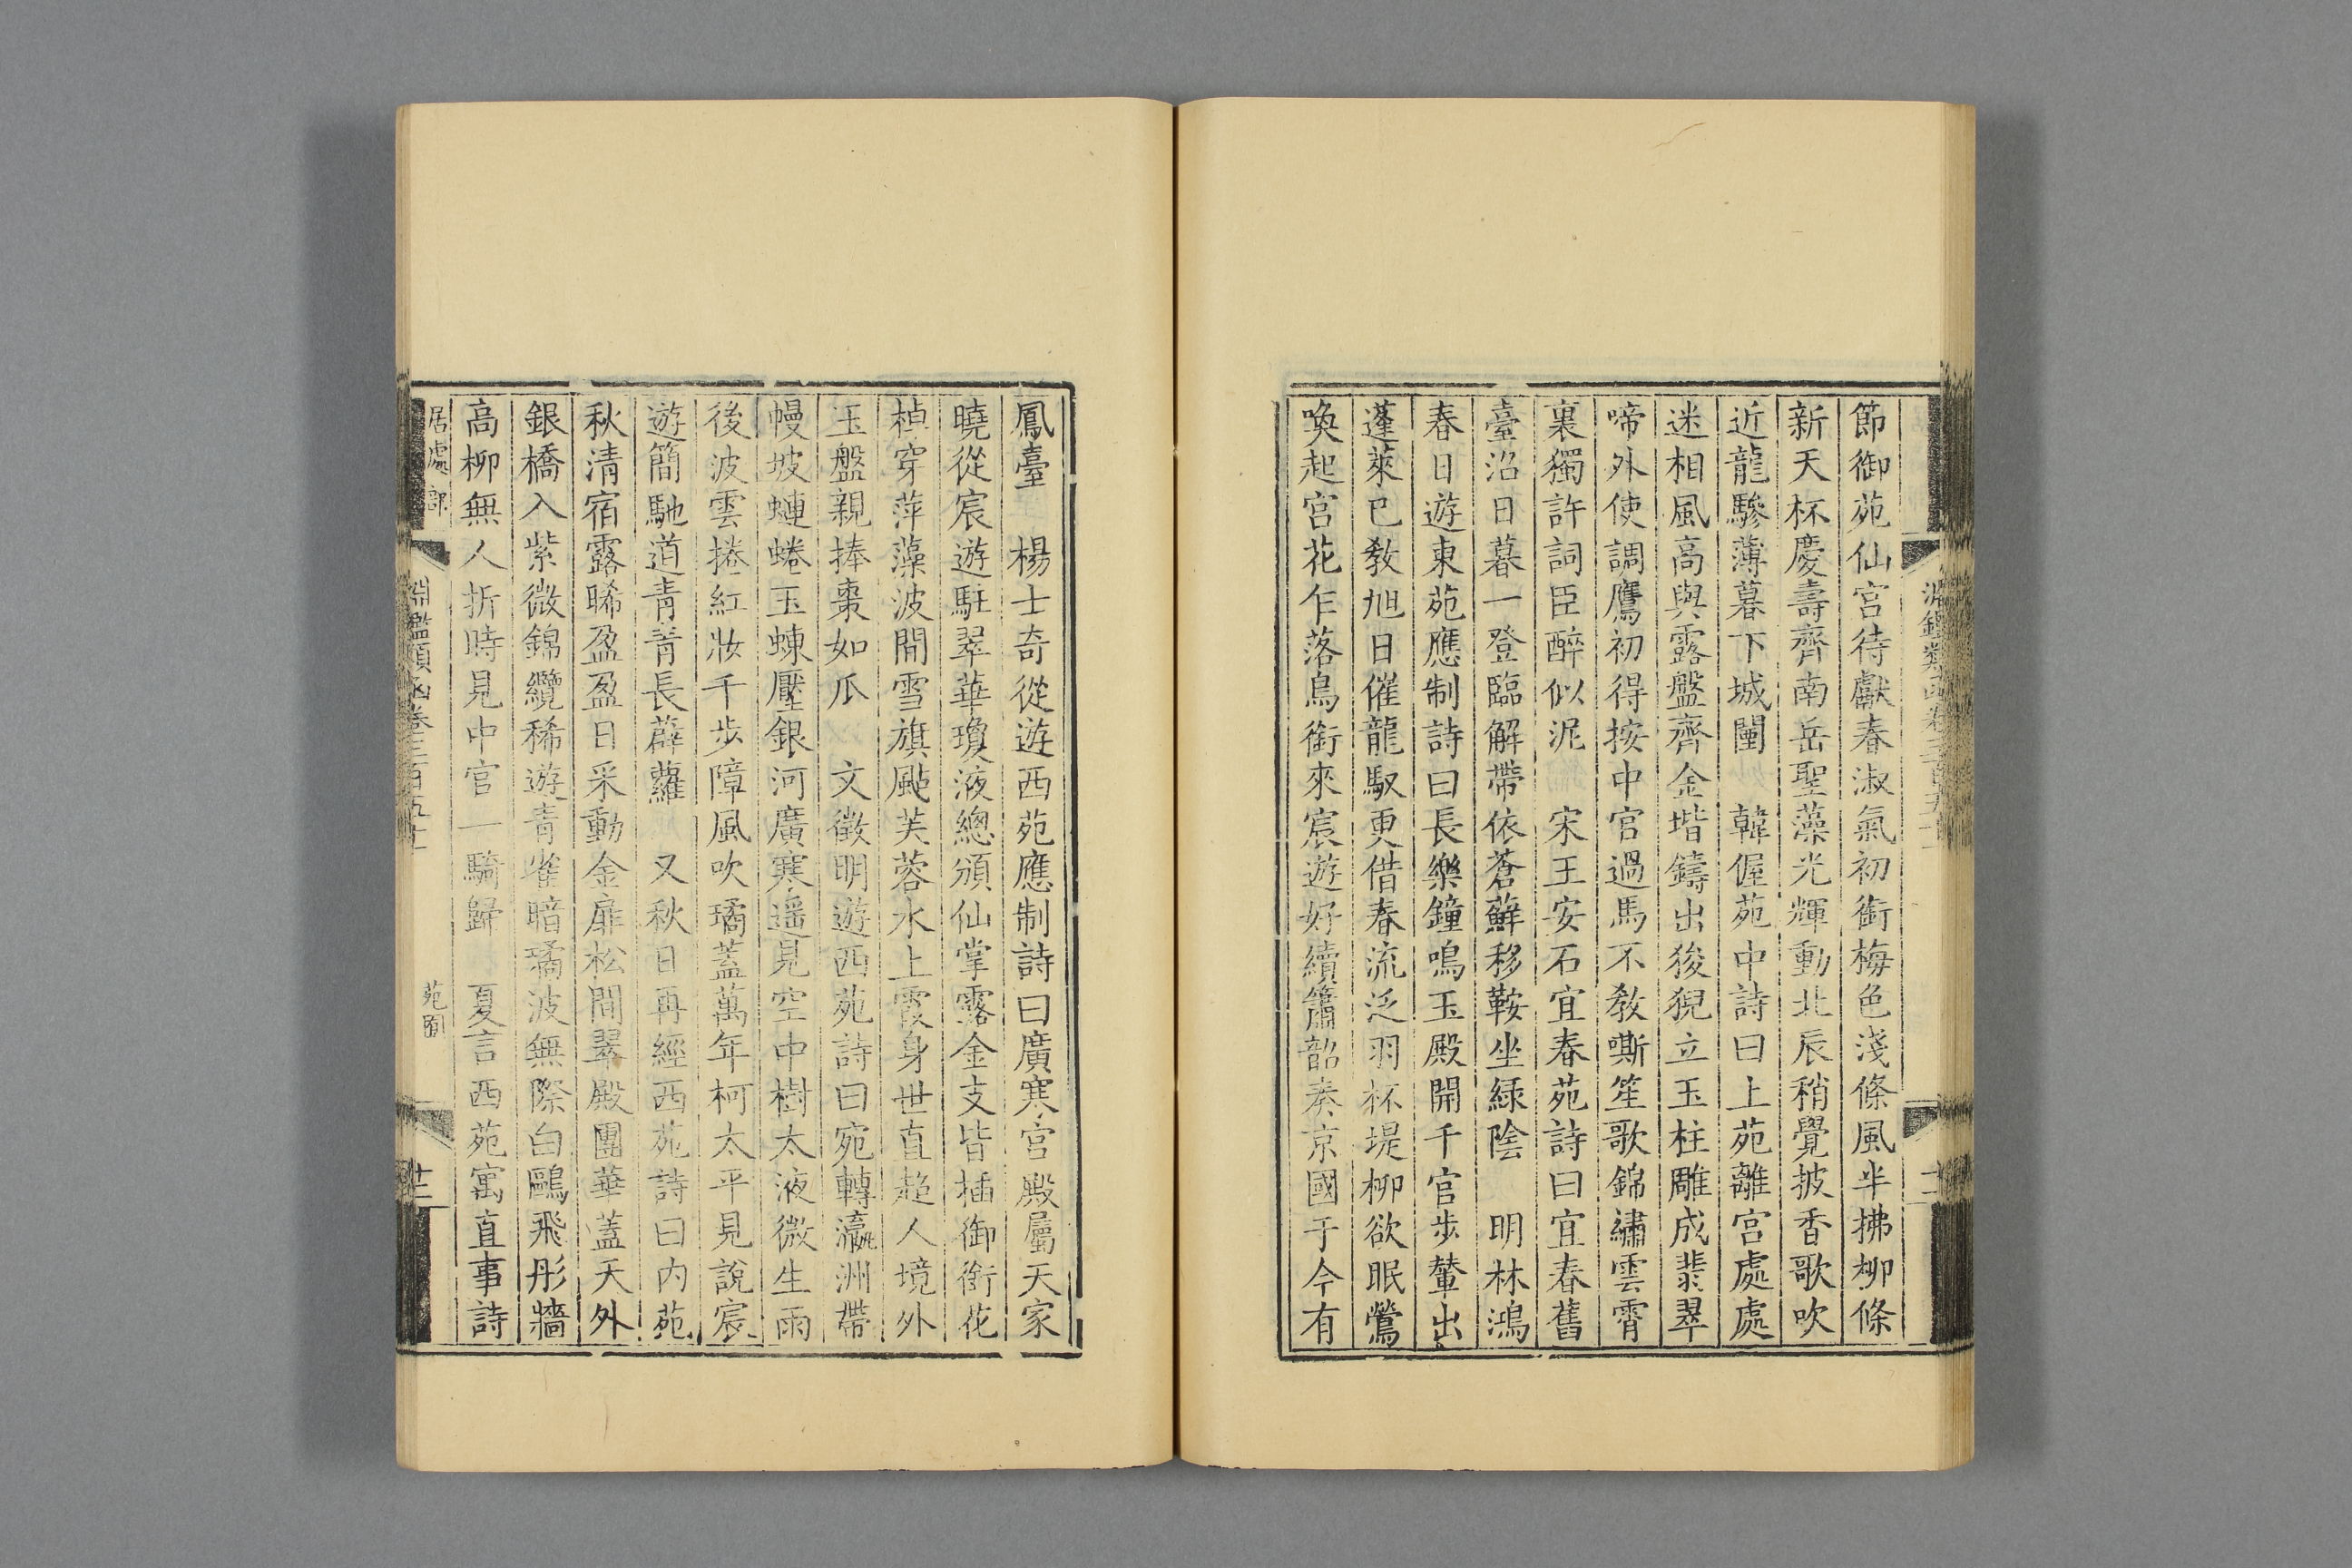 節御苑仙宮待獻春淑氣初銜梅色淺條風半拂柳條
新天杯慶壽齊南岳聖藻光輝動北辰稍覺披香歌吹
近龍驂薄暮下城闉　韓偓苑中詩曰上苑離宮處處
迷相風高與露盤齊金堦鑄出狻猊立玉柱雕成翡翠
啼外使調鷹初得按中官過馬不教嘶笙歌錦繡雲霄
裏獨許詞臣醉似泥　宋王安石宜春苑詩曰宜春舊
臺沼日暮一登臨解帶依蒼蘚移鞍坐綠陰　明林鴻
春日遊東苑應制詩曰長樂鐘鳴玉殿開千官步輦出
蓬萊已教旭日催龍馭更借春流泛羽杯堤柳欲眠鶯
喚起宮花乍落鳥銜來宸遊好續簫韶奏京國于今有
鳳臺　楊士奇從遊西苑應制詩曰廣寒宮殿屬天家
曉從宸遊駐翠華瓊液總頒仙掌露金支皆插御銜花
棹穿萍藻波間雪旗颭芙蓉水上霞身世直超人境外
玉盤親捧棗如瓜　文徵明遊西苑詩曰宛轉瀛洲帶
幔坡蝀蜷玉蝀壓銀河廣寒遥見空中樹太液微生雨
後波雲捲紅妝千步障風吹璚蓋萬年柯太平見說宸
遊簡馳道青青長薜蘿　又秋日再經西苑詩曰內苑
秋清宿露晞盈盈日采動金扉松間翠殿團華蓋天外
銀橋入紫微錦纜稀遊青雀暗璚波無際白鷗飛彤牆
高柳無人折時見中官一騎歸　夏言西苑寓直事詩
居處部
淵鑑類函卷三百五十
苑囿